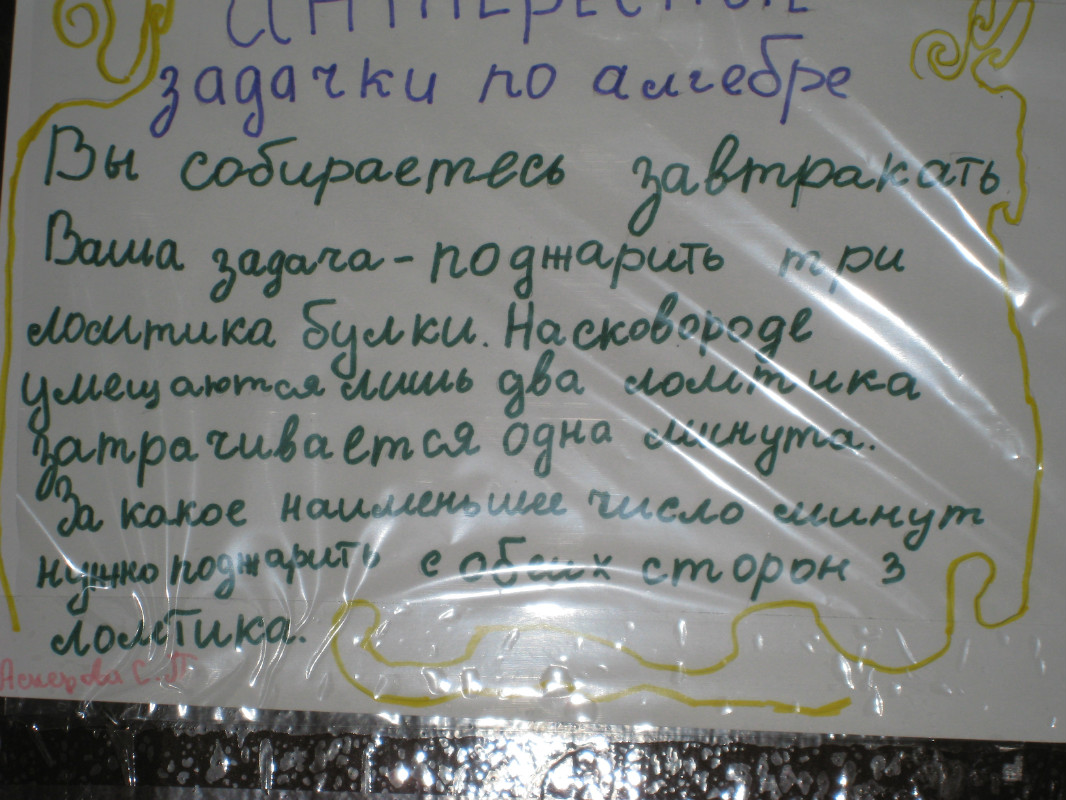 Интересные
задачки по алгебре
Вы собираетесь завтракать
Ваша задача - поджарить три
ломтика булки. На сковороде
умещаются лишь два ломтика
затрачивается одна минута.
За какое наименьшее число минут
нужно поджарить с обеих сторон 3
ломтика.
С.П